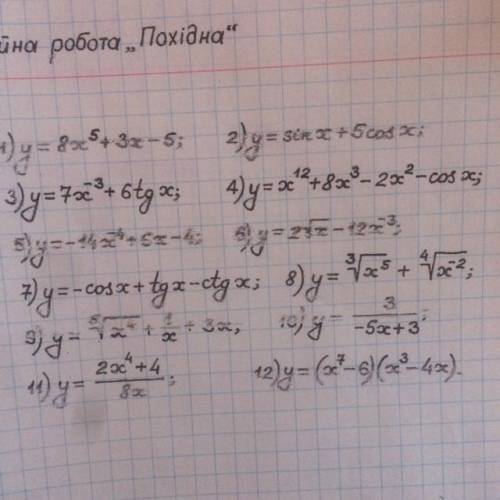 йна робота „Похідна“
1) y = 8x⁵ + 3x − 5; 2) y = sin x + 5 cos x;
3) y = 7x⁻³ + 6 tg x; 4) y = x¹² + 8x³ − 2x² − cos x;
5) y = −14x⁻⁴ + 5x − 4; 6) y = 2√x − 12x⁻³;
7) y = −cos x + tg x − ctg x; 8) y = ∛(x⁵) + ∜(x⁻²);
9) y = ⁵√(x⁴) + 1/x + 3x; 10) y = 3/(−5x + 3);
11) y = (2x⁴ + 4)/(8x); 12) y = (x⁷ − 6)(x³ − 4x).